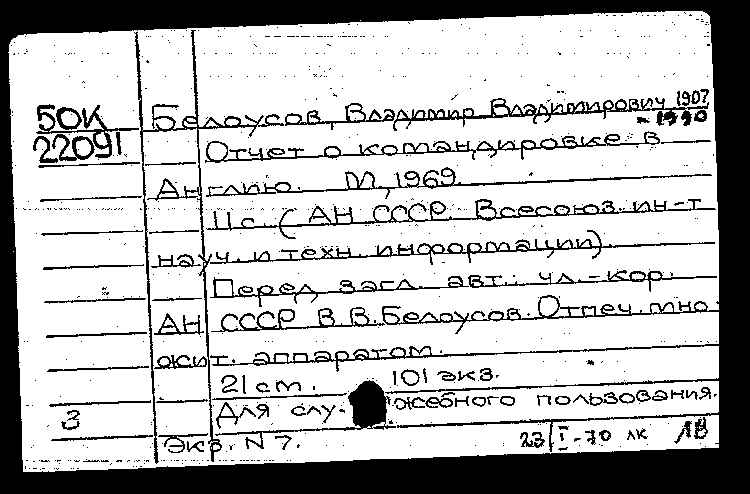 50К Белоусов, Владимир Владимирович 1907
22091 - 1990
Отчет о командировке в
Англию. М., 1969.
11 с. (АН СССР. Всесоюз. ин-т
науч. и техн. информации).
Перед загл. авт.: чл.-кор.
АН СССР В.В. Белоусов. Отпеч. мно-
жит. аппаратом.
21 см. 101 экз.
3 Для слу- жебного пользования.
Экз. N 7. 23/I-70 лк ЛВ